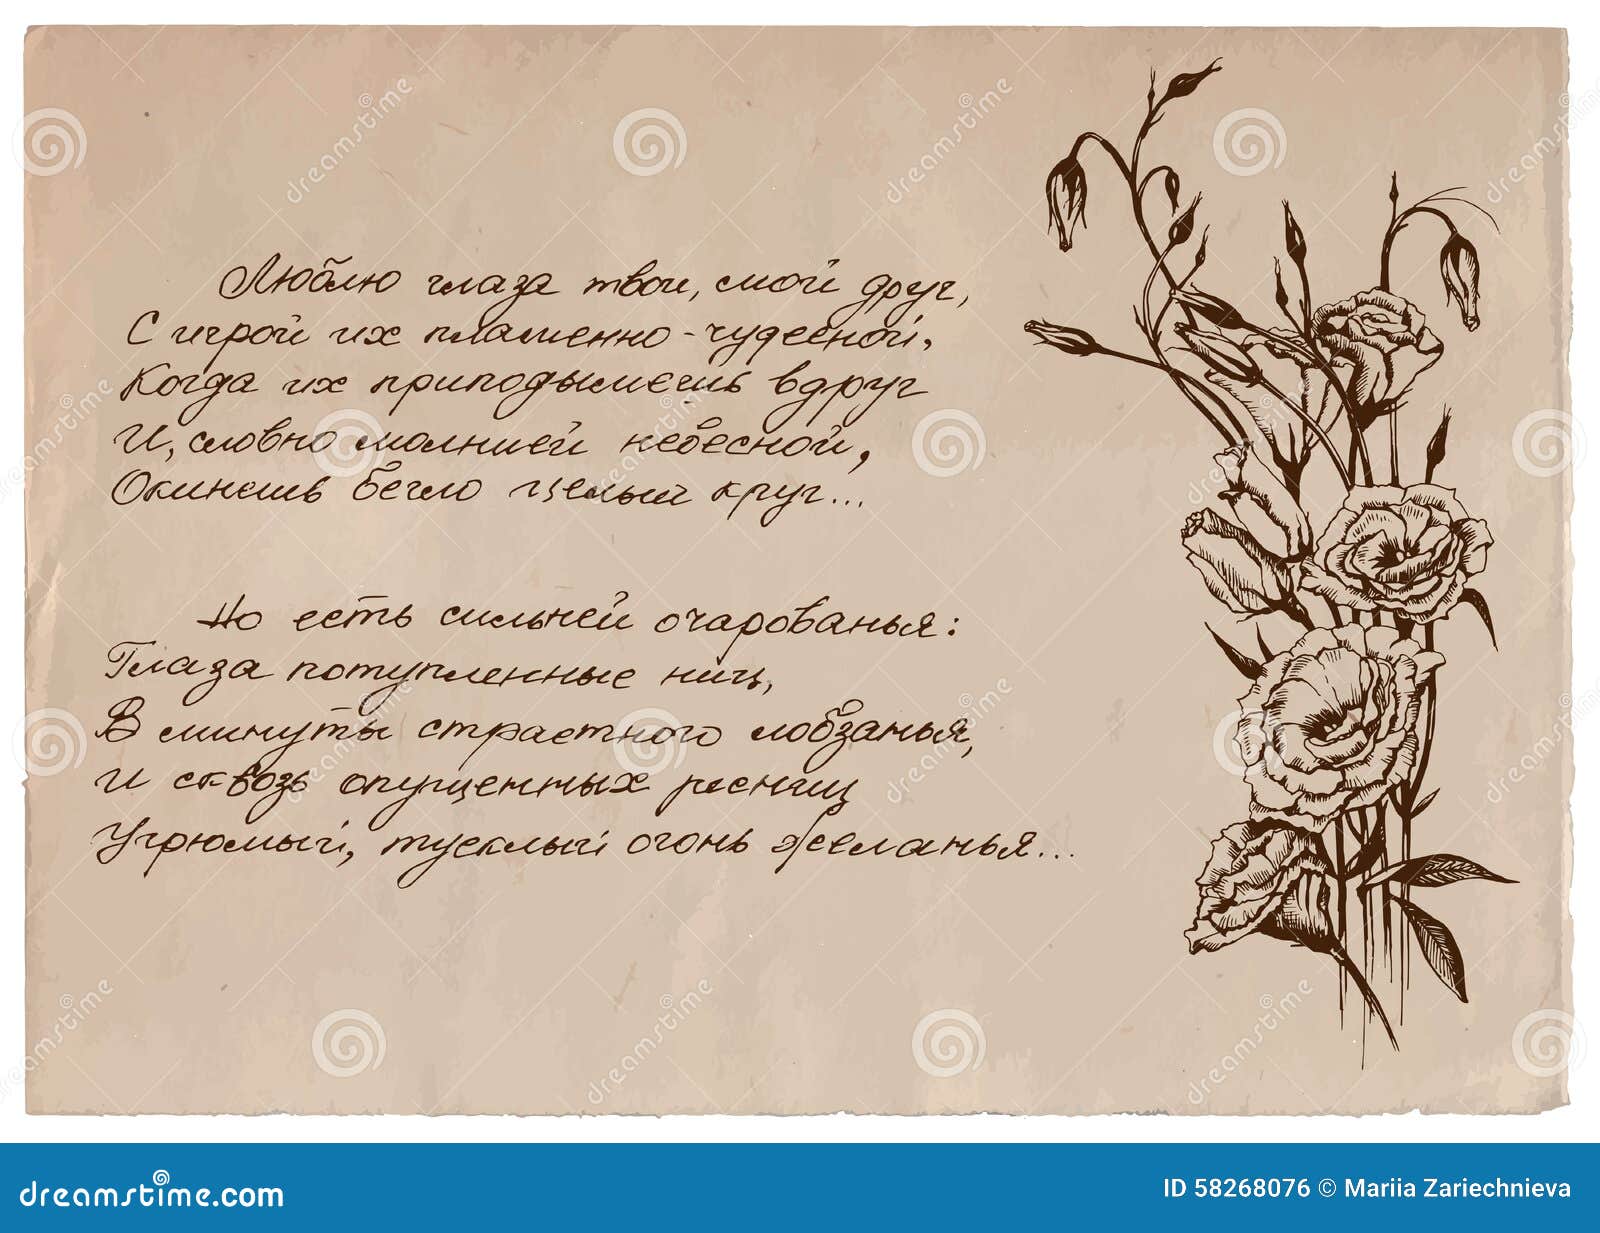 Люблю глаза твои, мой друг,
С игрой их пламенно-чудесной,
Когда их приподымешь вдруг
И, словно молнией небесной,
Окинешь бегло целый круг...
Но есть сильней очарованья:
Глаза потупленные ниц,
В минуты страстного лобзанья,
И сквозь опущенных ресниц
Угрюмый, тусклый огонь желанья...
dreamstime.com
ID 58268076 © Mariia Zariechnieva